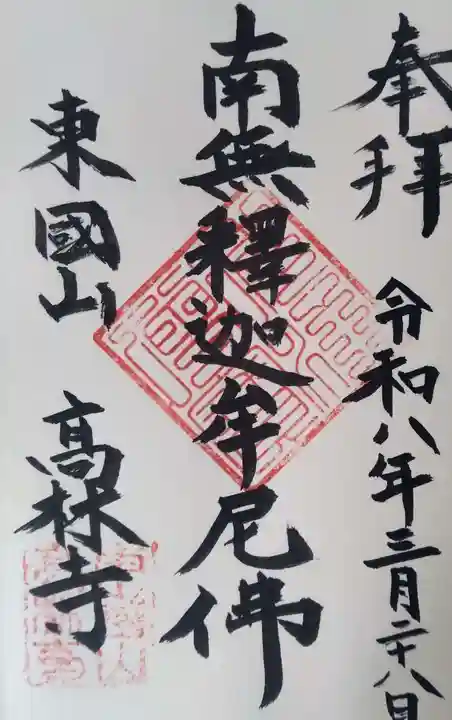 奉拜
令和八年三月二十八日
南無釋迦牟尼佛
東國山 髙林寺